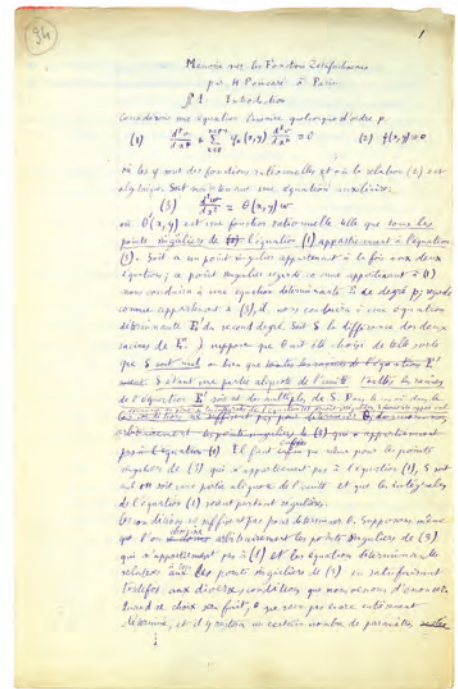 94
1
Mémoire sur les Fonctions Zétafuchsiennes
par H Poincaré à Paris
§ 1 Introduction
Considérons une équation linéaire quelconque d'ordre p
(1) d^p v / dx^p + Σ φ_k(x,y) d^k v / dx^k = 0 (2) f(x,y)=0
où les φ sont des fonctions rationnelles et où la relation (2) est
algébrique. Soit maintenant une équation auxiliaire.
(3) d²w / dx² = θ(x,y) w
où θ(x,y) est une fonction rationnelle telle que tous les
points singuliers de l'équation (1) appartiennent à l'équation
(3). Soit a un point singulier appartenant à la fois aux deux
équations; ce point singulier regardé comme appartenant à (1)
nous conduira à une équation déterminante E de degré p; regardé
comme appartenant à (3), il nous conduira à une équation
déterminante E' du second degré. Soit S la différence des deux
racines de E'. Je suppose que θ ait été choisi de telle sorte
que S soit nul ou bien que toutes les racines de l'équation E'
soient S étant une partie aliquote de l'unité toutes les racines
de l'équation E soient des multiples de S.
arbitrairement les points singuliers de (3) qui n'appartiennent
pas à l'équation (1) Il faut enfin que même pour les points
singuliers de (3) qui n'appartiennent pas à l'équation (1), S soit
nul ou soit une partie aliquote de l'unité et que les intégrales
de l'équation (1) soient partout régulières.
Ces conditions ne suffisent pas pour déterminer θ. Supposons même
que l'on choisisse arbitrairement les points singuliers de (3)
qui n'appartiennent pas à (1) et les équations déterminantes
relatives aux points singuliers de (3) en satisfaisant
toutefois aux diverses conditions que nous venons d'énoncer.
Quand ce choix sera fait, θ ne sera pas encore entièrement
déterminé, et il y restera un certain nombre de paramètres